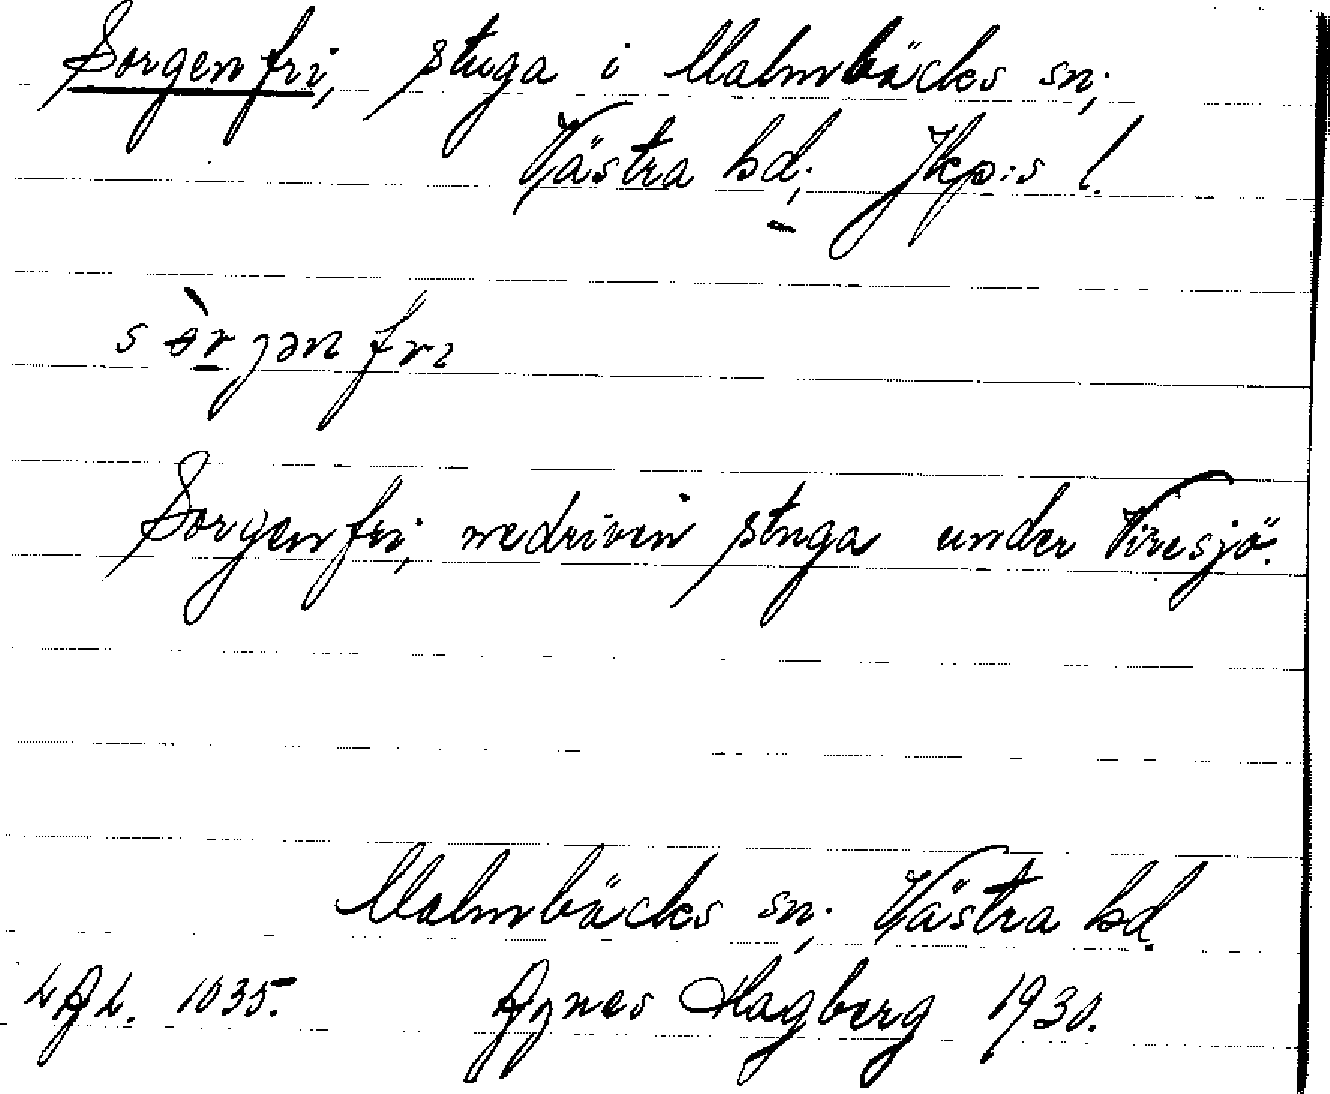 Sorgenfri, stuga i Malmbäcks sn;
Västra hd; Jkp:s l.
Sorgenfri, nedriven stuga under Viresjö.
Malmbäcks sn; Västra hd.
1035. Agnes Hagberg 1930.